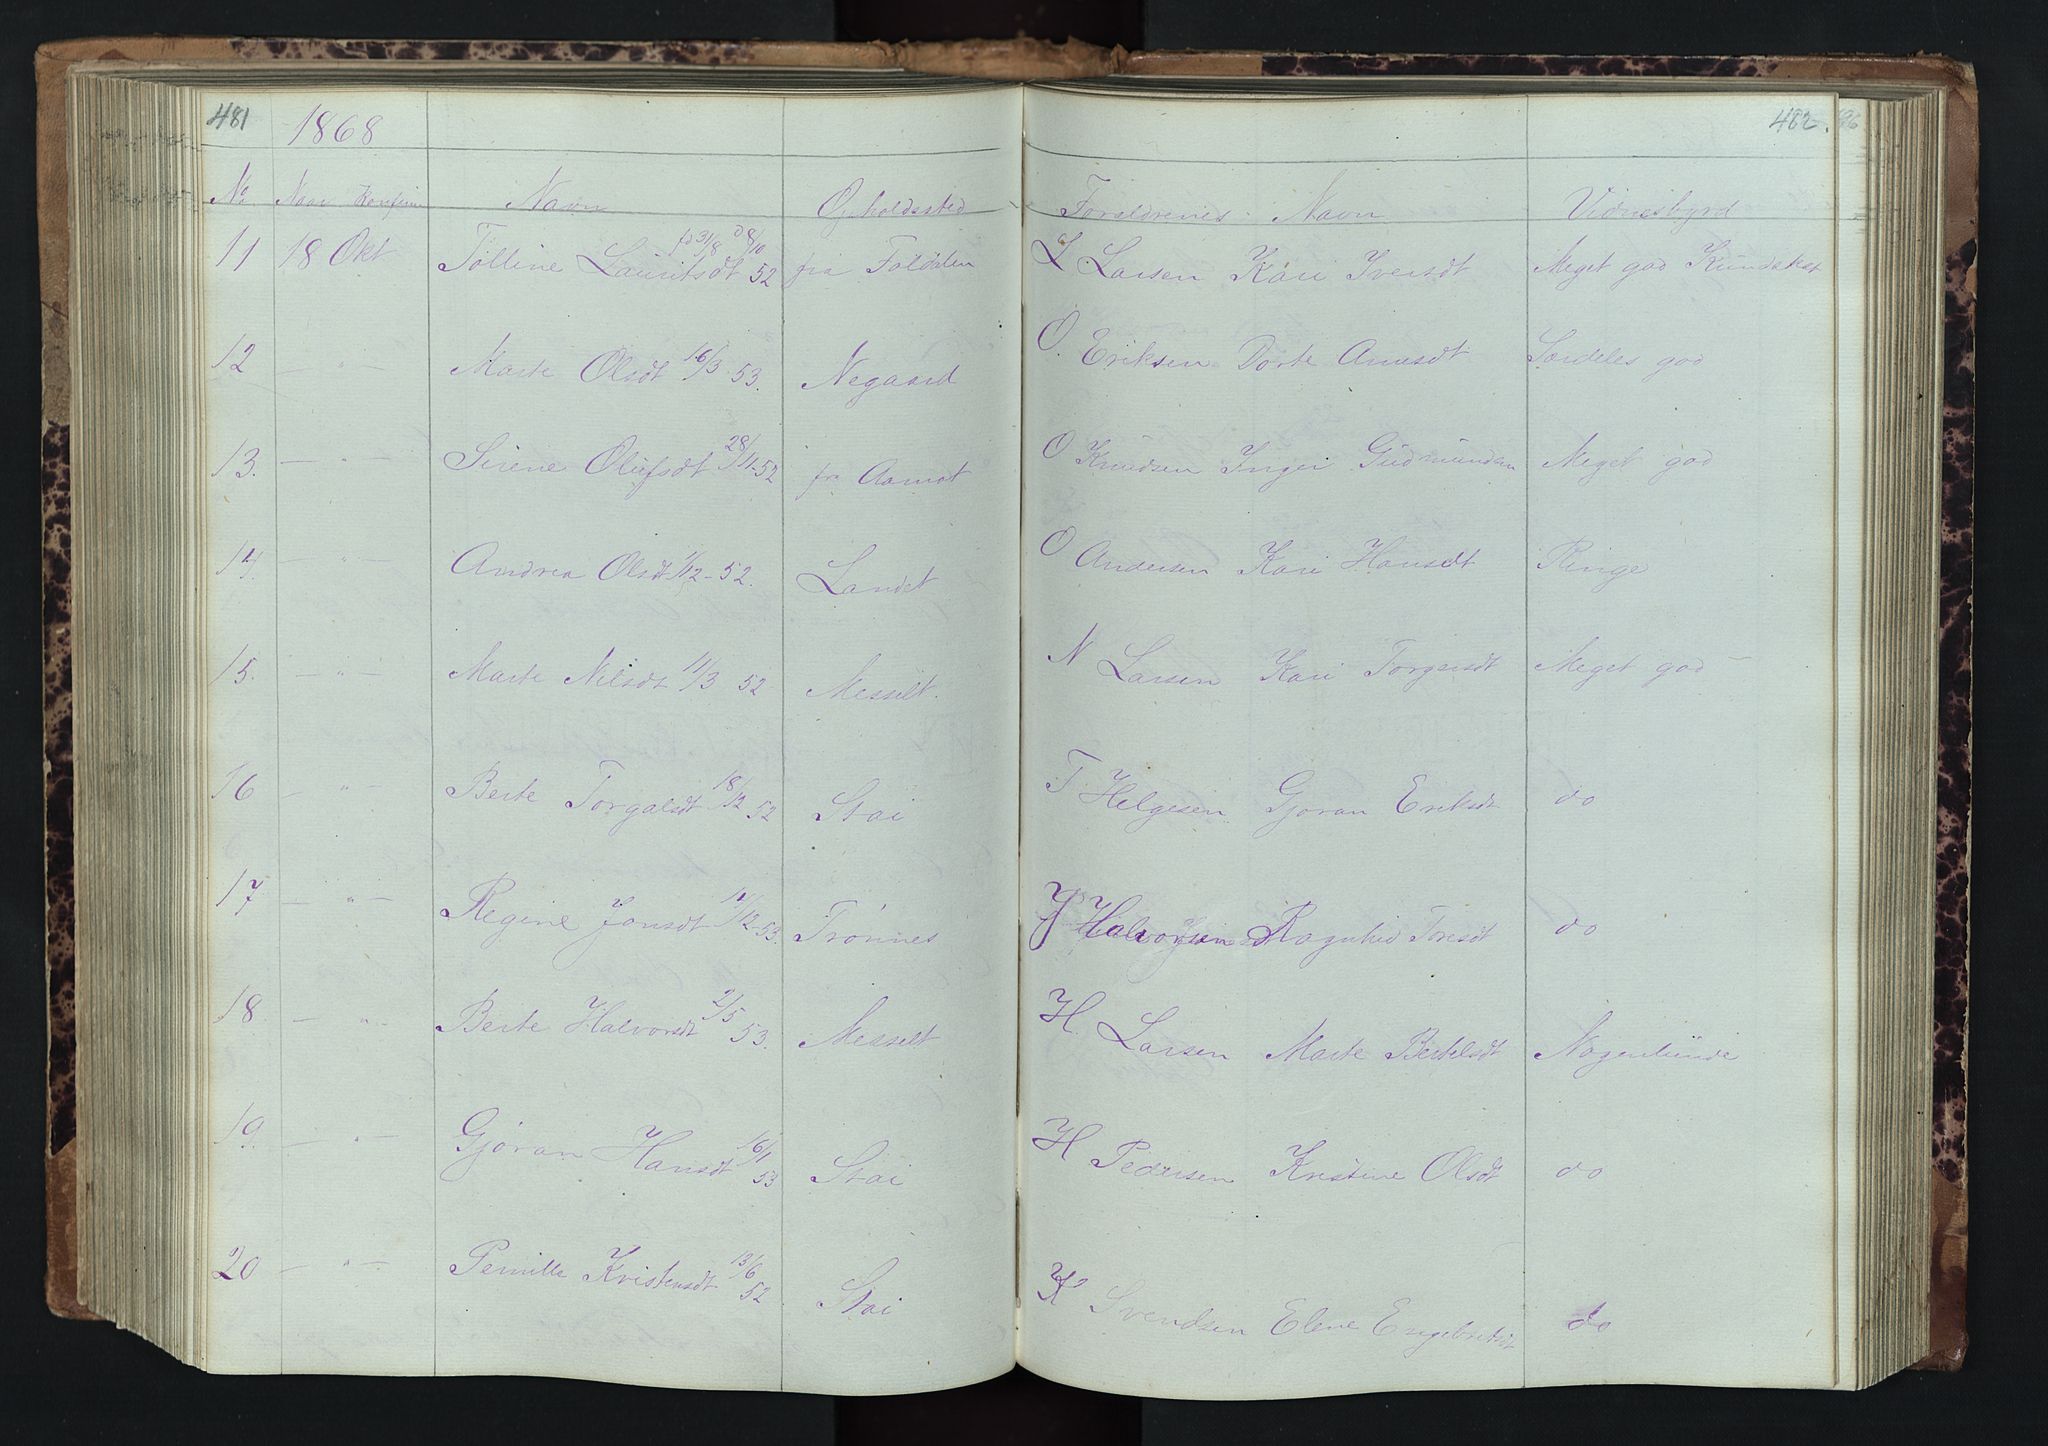 481 1868 482. 96
No Naar Konfirm Navn Opholdssted Forældrenes Navn Vidnesbyrd
11 18 Okt Tolline Lauritsdt fd 31/8 D 8/10 52 fra Foldalen L Larsen Kari Iversdt Meget god Kundskab
12 — " — Marte Olsdt 16/3 53. Negaard O Eriksen Dorte Amusdt Særdeles god
13. — " — Sirene Olufsdt 28/11-52 fra Aamot O Knudsen Inger Gudmundsen Meget god
14. — " — Andrea Olsdt 1/12-52. Landet O Andersen Kari Hansdt Ringe
15. — " — Marte Nilsdt 11/3 52 Messelt. N Larsen Kari Torgersdt Meget god —
16 — " — Berte Torgalsdt 18/12 52 Stai T Helgesen Gjøran Eriksdt do
17 — " — Regine Jonsdt 14/12-53. Trønnes J Halvorsen Ragnhid Toresdt do
18 — " — Berte Halvorsdt 2/5 53. Messelt H. Larsen Marte Bertelsdt Nogenlunde
19. — " — Gjøran Hansdt 16/1 53 Stai H Pedersen Kristine Olsdt do
20 — " — Pernille Kristensdt 13/6 52 Stai K Svendsen Elene Engebretsdt do